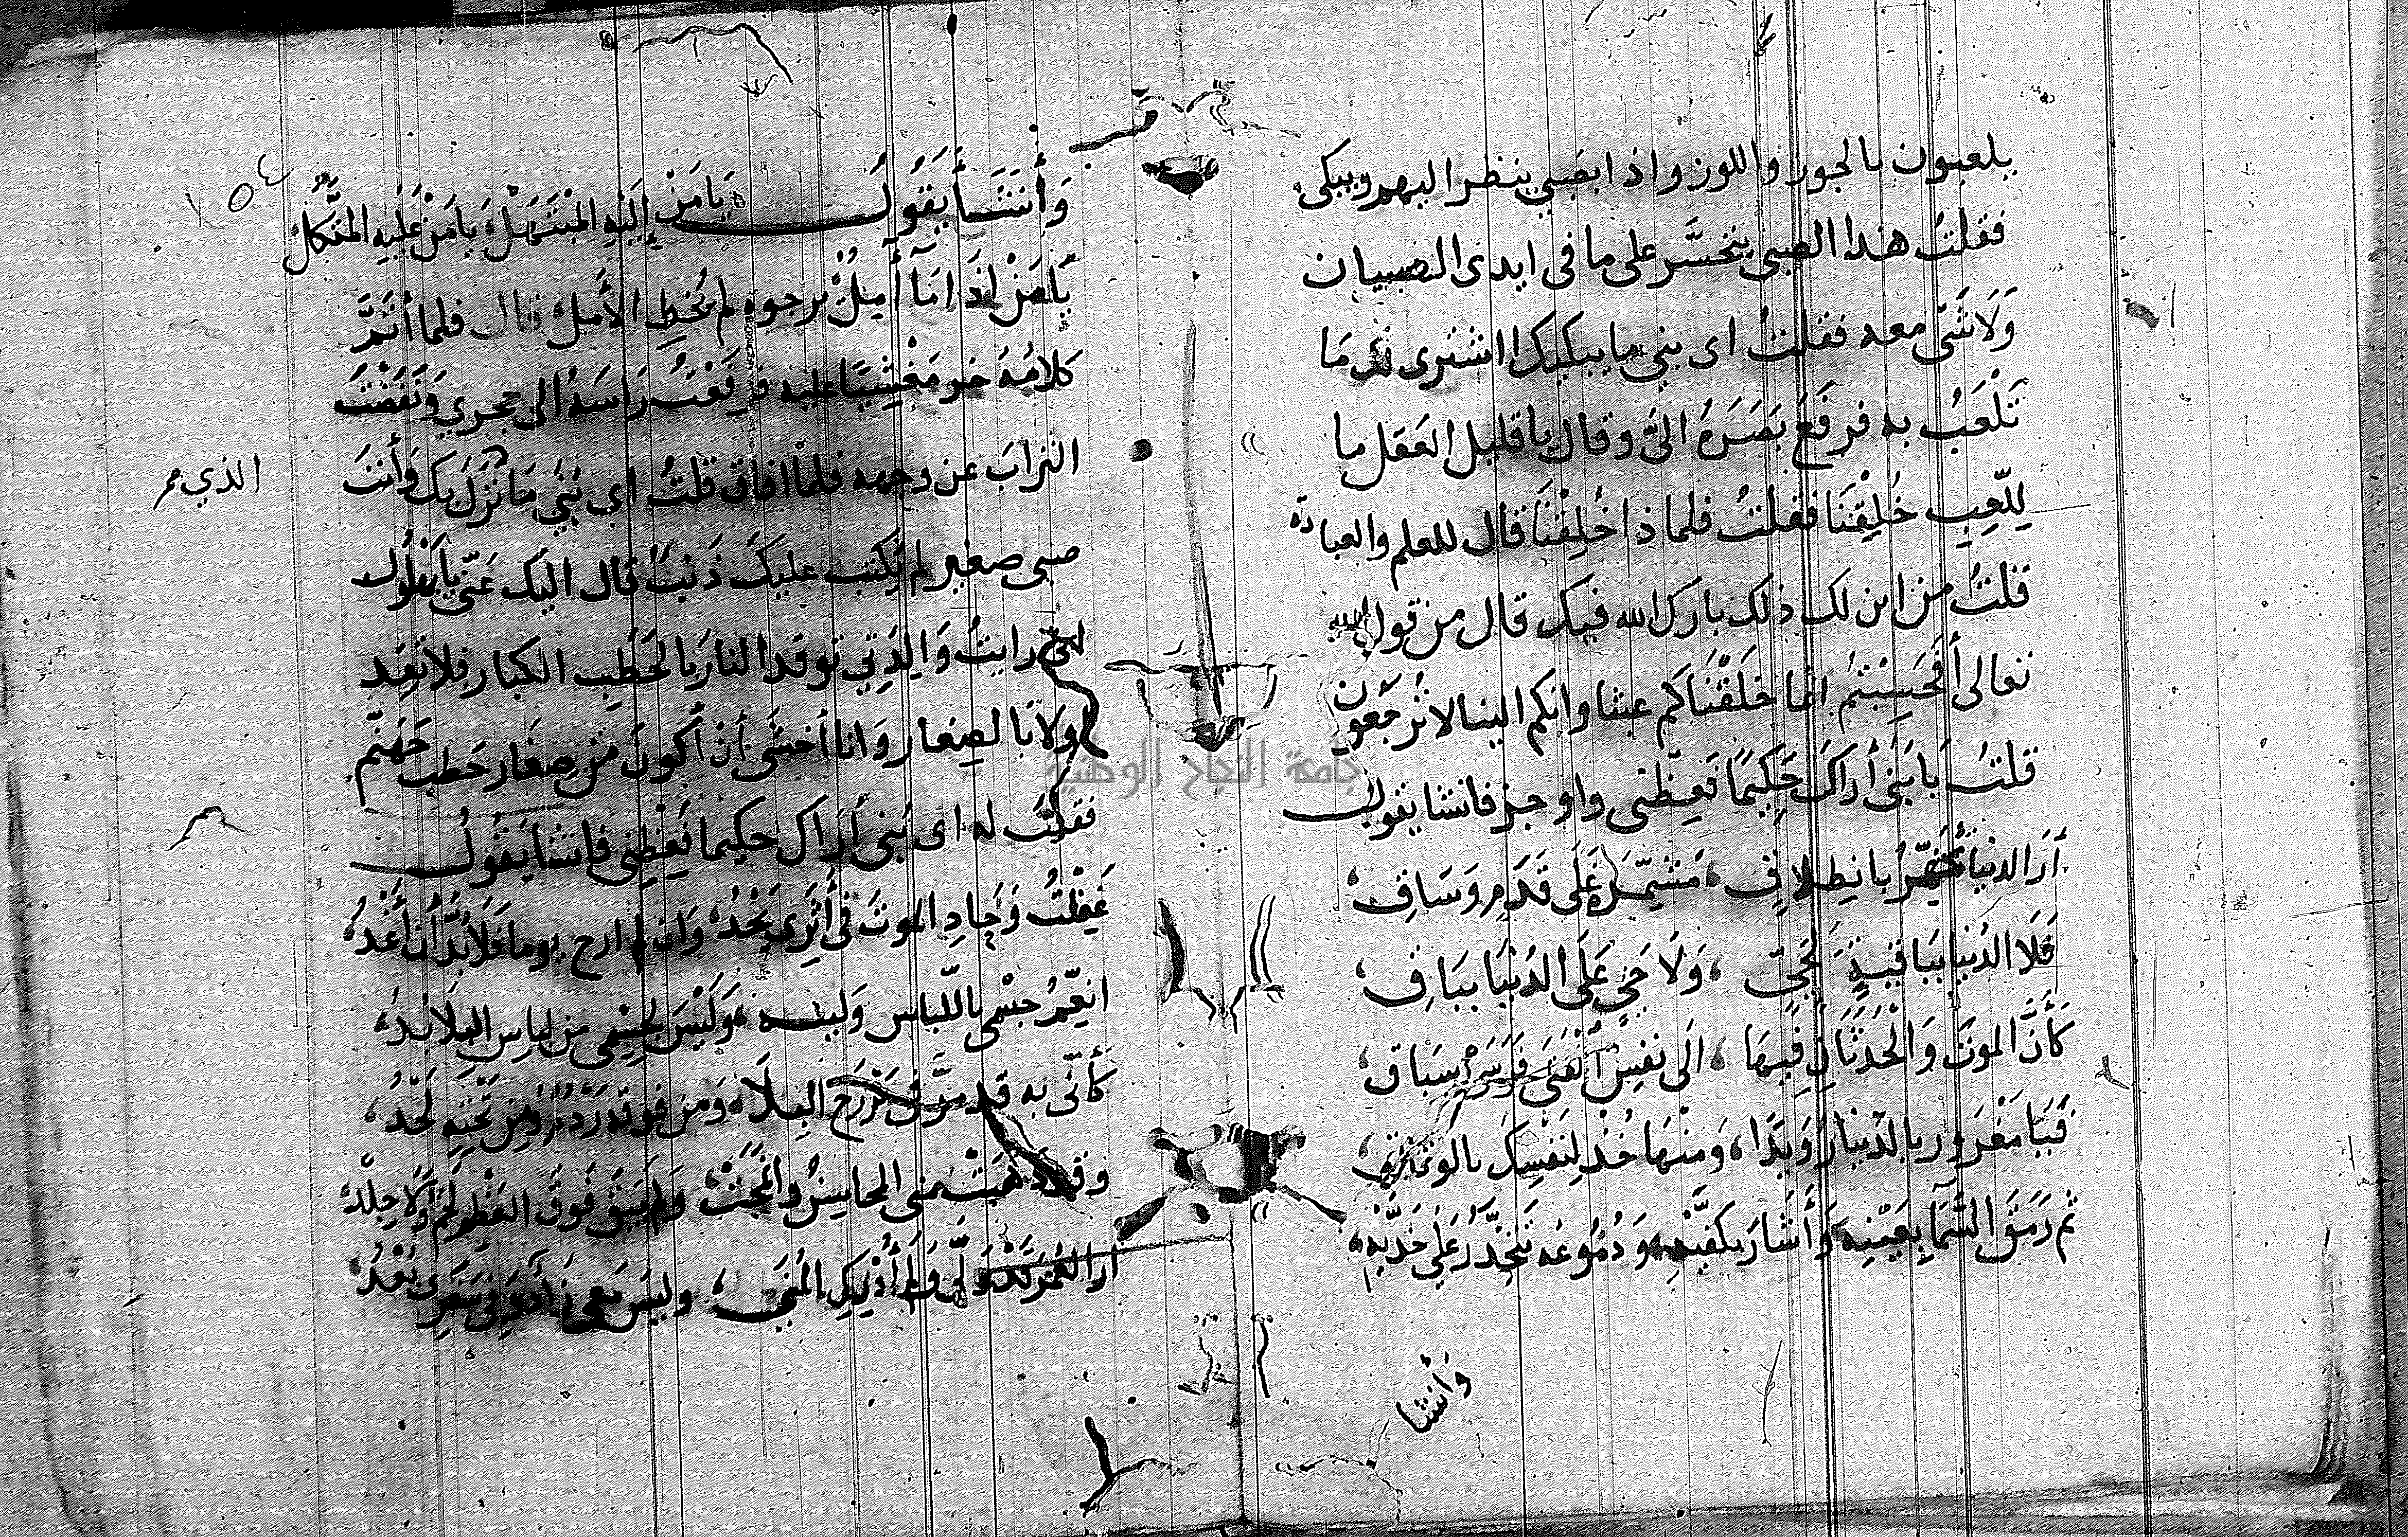 يلعبون بالجوز واللوز واذا بصبي ينظر اليهم ويبكى
فقلتُ هذا الصبى يتحسَّر على ما فى ايدى الصبيان
وَلَا شَىّ معه فقلتُ اى بني ما يبكيك اشترى لك مَا
تَلْعَبُ به فرفَعَ بَصَرَهُ الىَّ وقال يا قليل العَقل ما
لِلّعِبِ خُلِقْنَا فقلتُ فلماذا خُلِقْنَا قال للعلم والعبادة
قلتُ من اين لك ذلك بارك الله فيك قال من قول الله
تعالى أَفَحَسِبْتُمْ انما خَلَقْنَاكم عبثا وانكم الينا لا تُرجَعُون
قلتُ يَا بَنَى أراكَ حَكِيمًا فَعِظْنى واوجز فانشا يقول
أرَ الدنيا تُجَهِّزُ بانِطِلاقٍ ، مَشَمِّرَة عَلَى قَدَمٍ وسَاقِ ،
فَلَا الدُنيا بباقيةٍ لحَيِّ ، وَلَا حَيٍ عَلَى الدُنْيَا ببَاقِ ،
كَأَنَّ الموتَ وَالْحُدْثَانِ فِيهَا ، الَى نفِسْ الْفَتَى فَرَسَا سِبَاق ،
فَيَا مغرور بالدنيا رُوَيدًا ، وَمنْهَا خُذْ لِنَفْسِكَ بالوثاق ،
ثم رَمَقَ السَّمآ بِعَيْنِيه وَأَشَارَ بكفَّيْهِ ودُمُوعُه تَنْحَدَّرُ عَلَى خَدَّيْهِ ،
وأنشا
١٥٤
وَأَنشَأ يَقُولُ يَا مَنْ إِلَيْهِ المُبْتَهَلْ ، يا مَنْ عَلَيه المتَّكَلُ
يَا مَنْ اذَا مَآ آمِلُ يرجوه لم يُخطِ الأمل قال فلما أتمَّ
كلامُهُ خر مَغْشِيًا عليه فرفَعْتُ رَاسَهُ الى حجري وَنَفَضْتَ
الترابَ عن وجهه فلما افاق قلتُ اى بُنَي مَا نَزَلَ بك وأنتَ
الذي
صبى صغير لم يُكتب عليكَ ذَنبُ قال اليك عَنّى يا بَهْلُول
انى رايتُ وَالِدَتِي توقد النارَ بالحَطَبِ الكبار فلا تَقِد
ولا بالصِغار وَانا أخشَى أن أكونَ من صِغار حَطَبِ جَهَنّم
فقلتُ له اى بُنى أرَاك حكيما فَعِظْنِى فانشا يَقُولُ
غَفِلْتُ وَحادِ الموت فى أثَرِى يَحْدُ وَان لم ارح يوما فَلَا بُدَّ أن أغْدُ ،
انعِّمُ جسْمى باللّباس ولينه ، وَلَيْسَ لجِسْمى من لباسِ البِلَا بُدُ ،
كَأَنّى به قد مَرَّ فى بَرْزخِ البِلَا ، وَمن فوقه رَدْمُ ومِن تَحْتِهِ لَحْدُ ،
وقد ذَهَبَتْ منى المحاسِنُ وانمحَتْ وَلم يَبْقَ فَوقَ العَظم لحْم وَلا جلد
أرَ العُمرَ قَدْ وَلَّى وَلَم أُدْرِكِ المُنَى ، وليسَ مَعى زَادٌ وَفِى سَفَرِى بُعْدُ ،
جامعة النجاح الوطنية